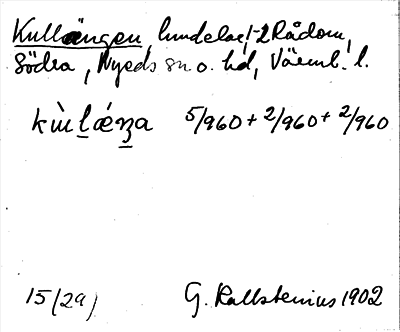 Kullängen, lundelag, 1-2 Rådom,
Södra, Nyeds sn o. hd, Värml. l.
5/960 + 2/960 + 2/960
15 (29)
G. Kallstenius 1902